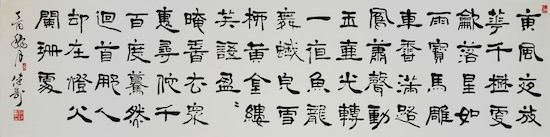 東風夜放
華千樹更
吹落星如
雨寶馬雕
車香滿路
鳳簫聲動
玉壺光轉
一夜魚龍
舞蛾皃雪
柳黃金縷
笑語盈〻
暗香去眾
裏尋他千
百度驀然
迴首那人
却在燈火
闌珊處